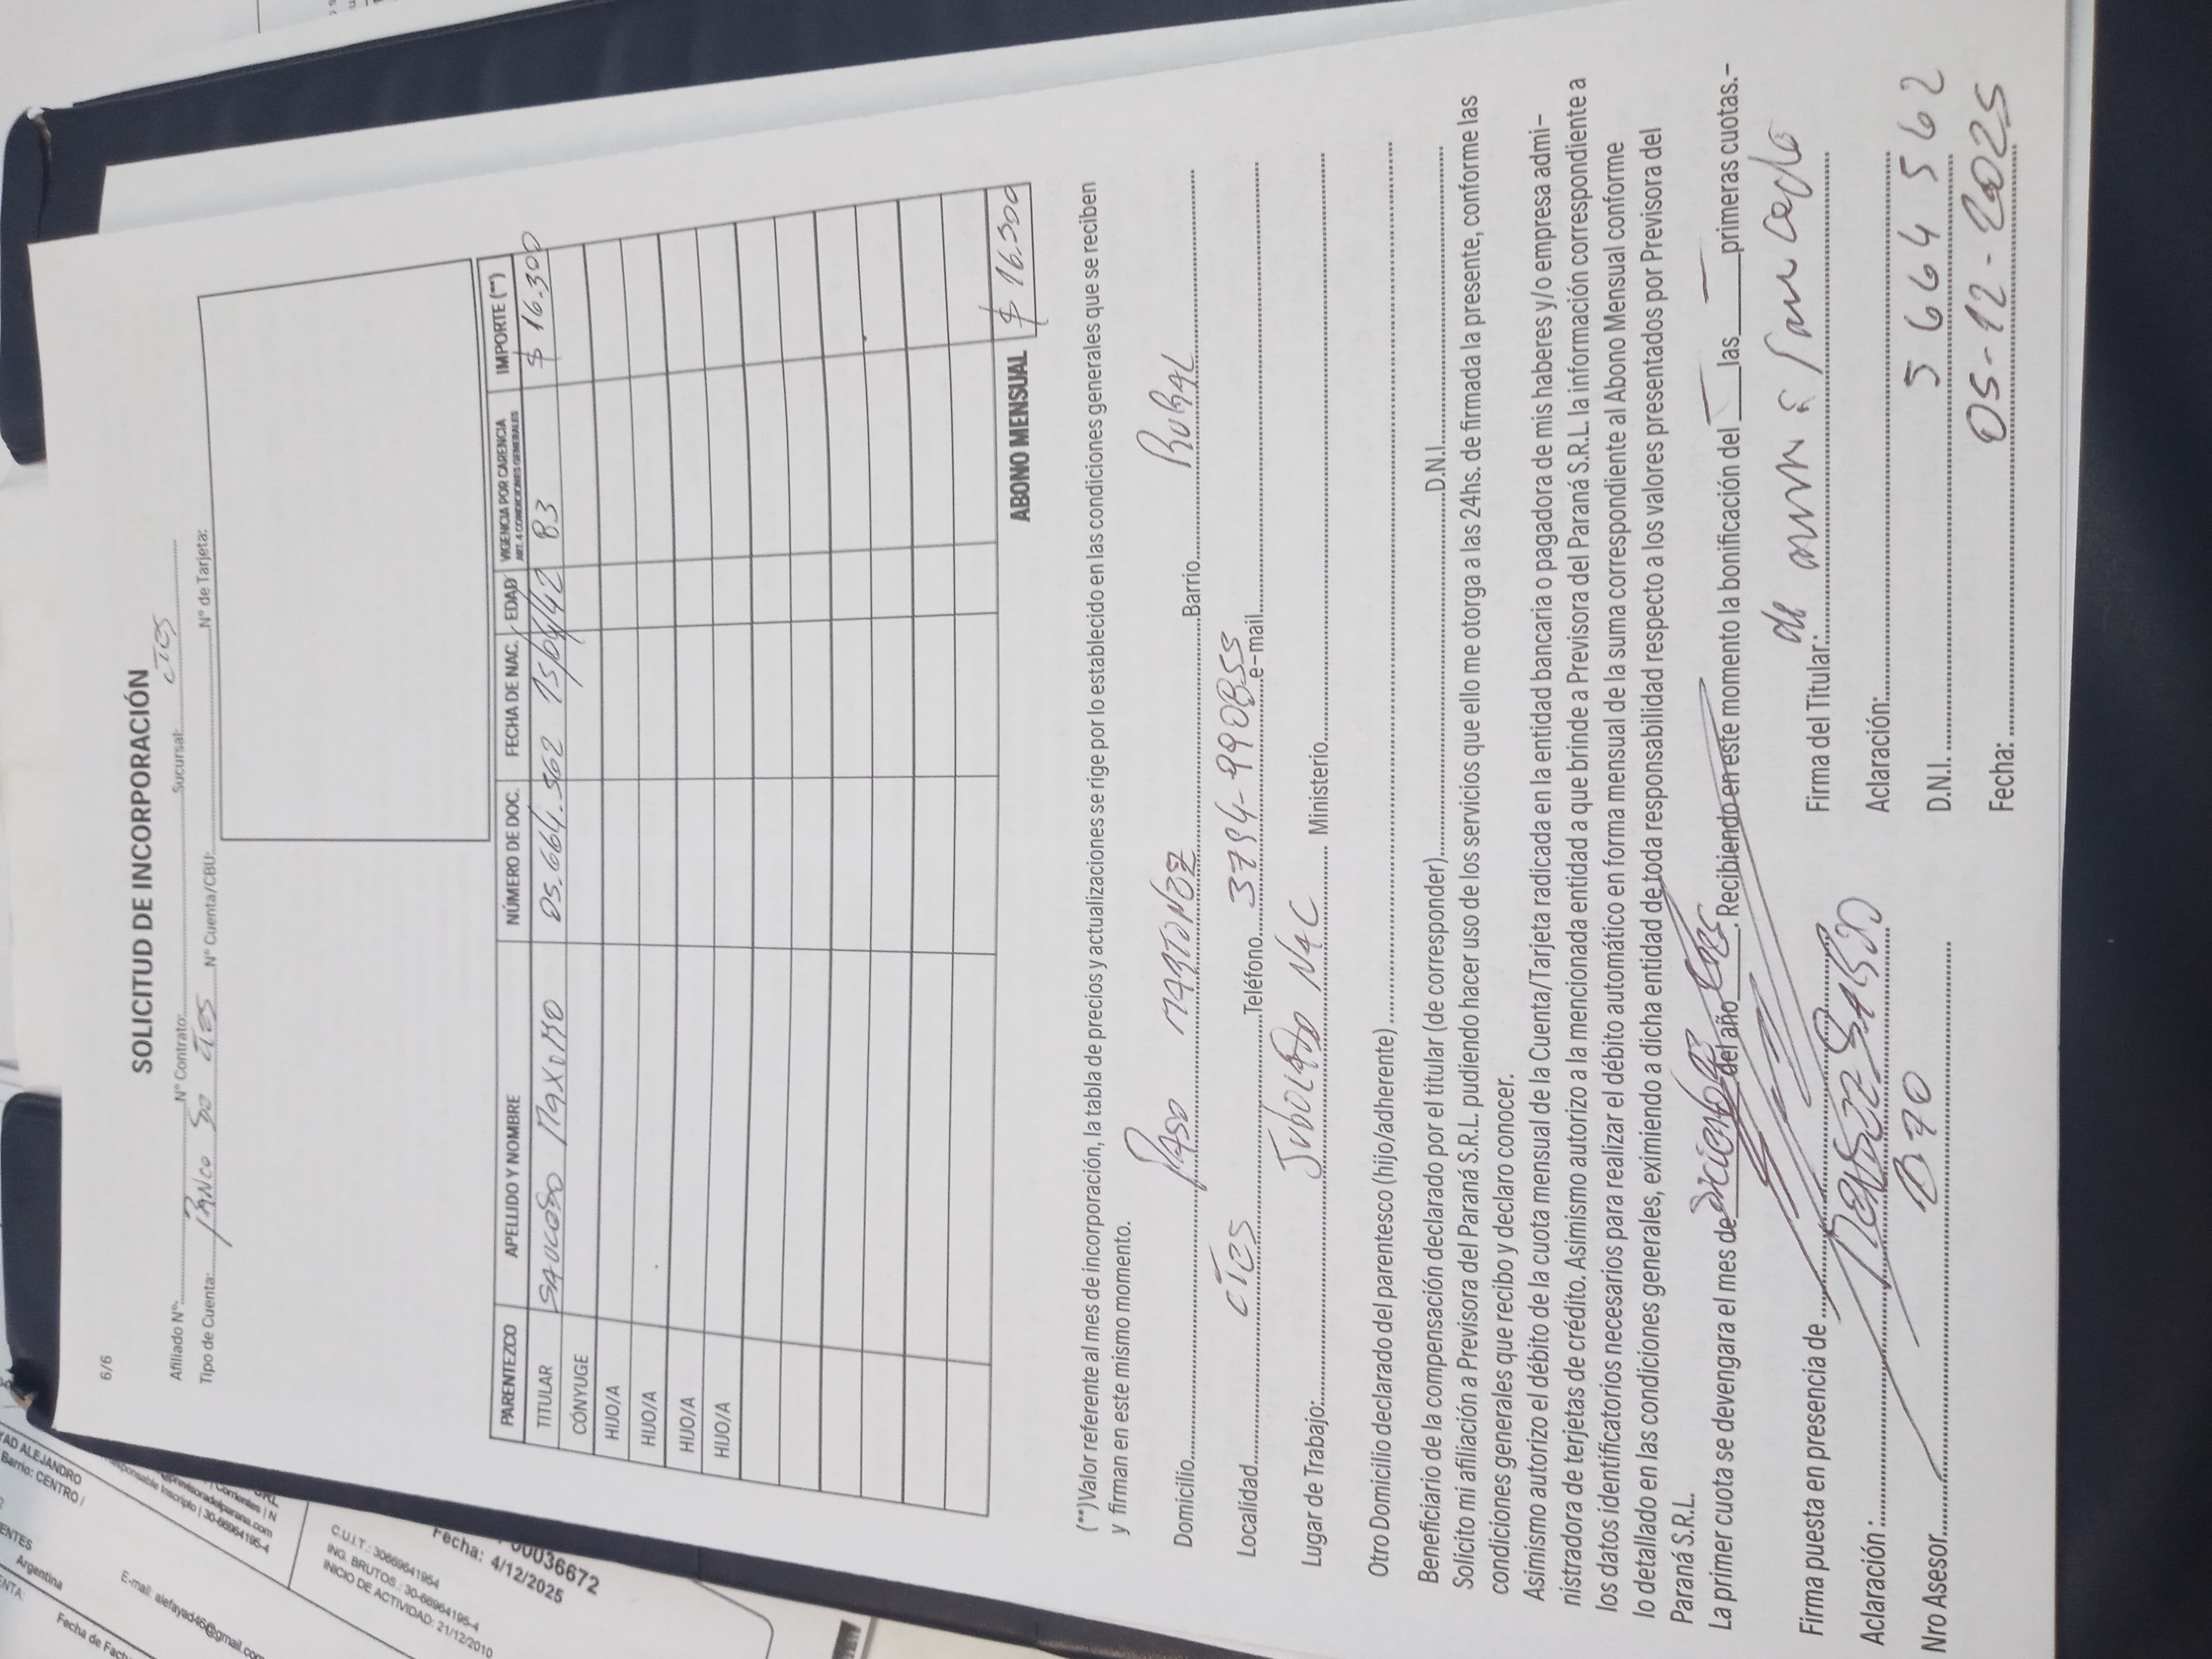 6/6
SOLICITUD DE INCORPORACIÓN
Afiliado Nº: Nº Contrato: Sucursal: CTES
Tipo de Cuenta: BANCO DO CTES Nº Cuenta/CBU: Nº de Tarjeta:
PARENTEZCO APELLIDO Y NOMBRE NÚMERO DE DOC. FECHA DE NAC. EDAD VIGENCIA POR CARENCIA ART. 4 CONDICIONES GENERALES IMPORTE (**)
TITULAR SAUCEDO MAXIMO 05.664.562 15/04/42 83 $ 16.300
CÓNYUGE
HIJO/A
HIJO/A
HIJO/A
HIJO/A
ABONO MENSUAL $ 16.300
(**)Valor referente al mes de incorporación, la tabla de precios y actualizaciones se rige por lo establecido en las condiciones generales que se reciben
y firman en este mismo momento.
Domicilio PASO MARTINEZ Barrio RURAL
Localidad CTES Teléfono 3794-990855 e-mail
Lugar de Trabajo: JUBILADO NAC Ministerio
Otro Domicilio declarado del parentesco (hijo/adherente)
Beneficiario de la compensación declarado por el titular (de corresponder) D.N.I.
Solicito mi afiliación a Previsora del Paraná S.R.L. pudiendo hacer uso de los servicios que ello me otorga a las 24hs. de firmada la presente, conforme las
condiciones generales que recibo y declaro conocer.
Asimismo autorizo el débito de la cuota mensual de la Cuenta/Tarjeta radicada en la entidad bancaria o pagadora de mis haberes y/o empresa admi-
nistradora de terjetas de crédito. Asimismo autorizo a la mencionada entidad a que brinde a Previsora del Paraná S.R.L. la información correspondiente a
los datos identificatorios necesarios para realizar el débito automático en forma mensual de la suma correspondiente al Abono Mensual conforme
lo detallado en las condiciones generales, eximiendo a dicha entidad de toda responsabilidad respecto a los valores presentados por Previsora del
Paraná S.R.L.
La primer cuota se devengara el mes de DICIEMBRE del año Recibiendo en este momento la bonificación del las primeras cuotas.-
Firma puesta en presencia de Firma del Titular:
Aclaración: Aclaración:
Nro Asesor 870 D.N.I. 5 664 562
Fecha: 05-12-2025
AD ALEJANDRO
Barrio: CENTRO /
Argentina
E-mail: alefayad46@gmail.com
Responsable Inscripto | 30-66964195-4
C.U.I.T.: 30669641954
ING. BRUTOS.: 30-66964195-4
INICIO DE ACTIVIDAD: 21/12/2010
00036672
Fecha: 4/12/2025